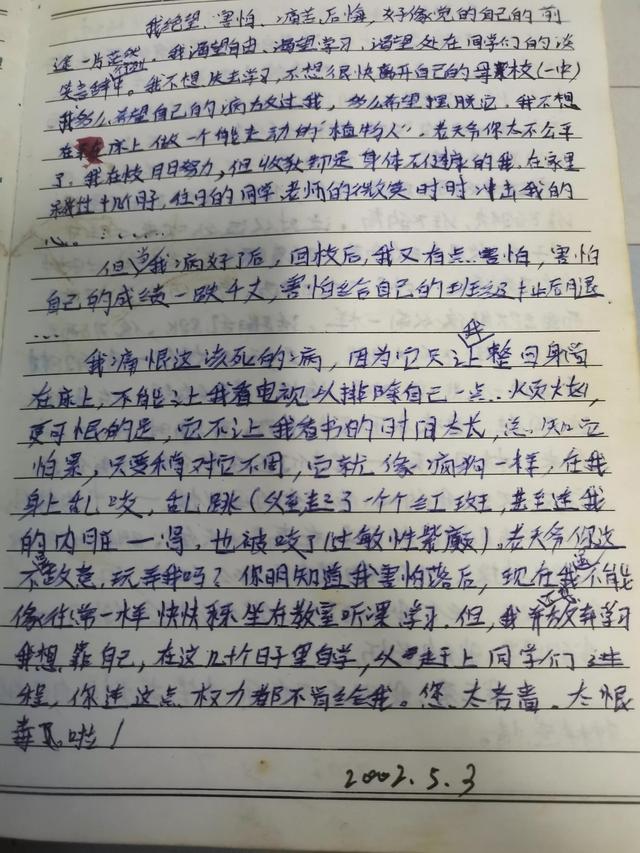 我绝望、害怕、痛苦、后悔,好像觉的自己的前
途一片茫然。我渴望自由、渴望学习,渴望处在同学们的谈
笑言辞中。我不想失去学习,不想很快离开自己的母校(一中)
我多么希望自己的病放过我,多么希望摆脱它,我不想
在床上做一个能走动的"植物人",老天爷你太不公平
了,我在校日日努力,但收获却是身体不健康的我,在家里
几个月子,往日的同学、老师的微笑时时冲击我的
心。……
但当我病好了后,回校后,我又有点害怕,害怕
自己的成绩一跌千丈,害怕给自己的班级扯后腿
……
我痛恨这该死的病,因为它只让我整日身肖
在床上,不能让我看电视以排除自己一点、火
更可恨的是,它不让我看书的时间太长,怎知它
怕累,只要稍对它不周,它就像疯狗一样,在我
身上乱咬,乱跳(以至起了一个个红斑,甚至连我
的内脏一得,也被咬了过敏性紫癜)。老天爷你这
不是故意玩弄我吗?你明知道我害怕落后,现在我还不能
像往常一样快快乐乐坐在教室听课、学习。但,我并没放弃学习
我想靠自己,在这几十个日子里自学,以走上同学们进
程,你连这点权力都不肯给我。您、太吝啬、太恨
毒啦!
2002.5.3